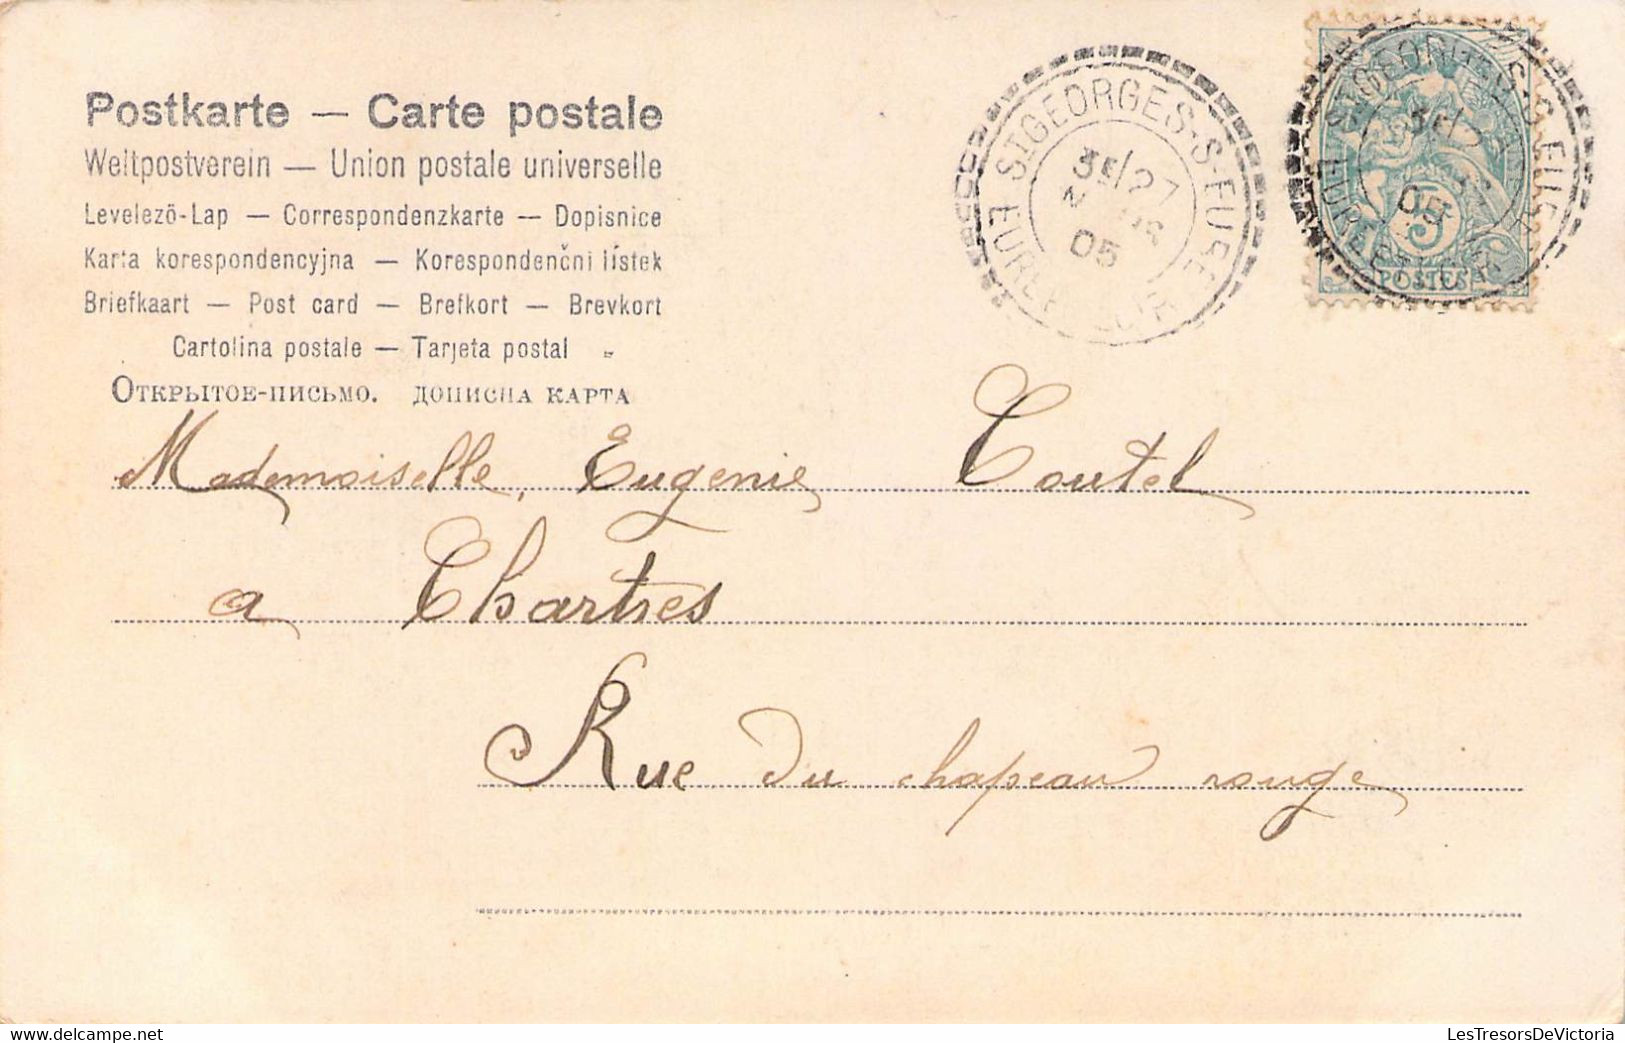 Postkarte — Carte postale
Weltpostverein — Union postale universelle
Levelezö-Lap — Correspondenzkarte — Dopisnice
Karta korespondencyjna — Korespondenčni lístek
Briefkaart — Post card — Brefkort — Brevkort
Cartolina postale — Tarjeta postal
Открытое-письмо. дописна карта
ST GEORGES-S-EURE
EURE
05
5
POSTES
Mademoiselle, Eugenie Coutel
a Chartres
Rue du chapeau rouge
LesTresorsDeVictoria